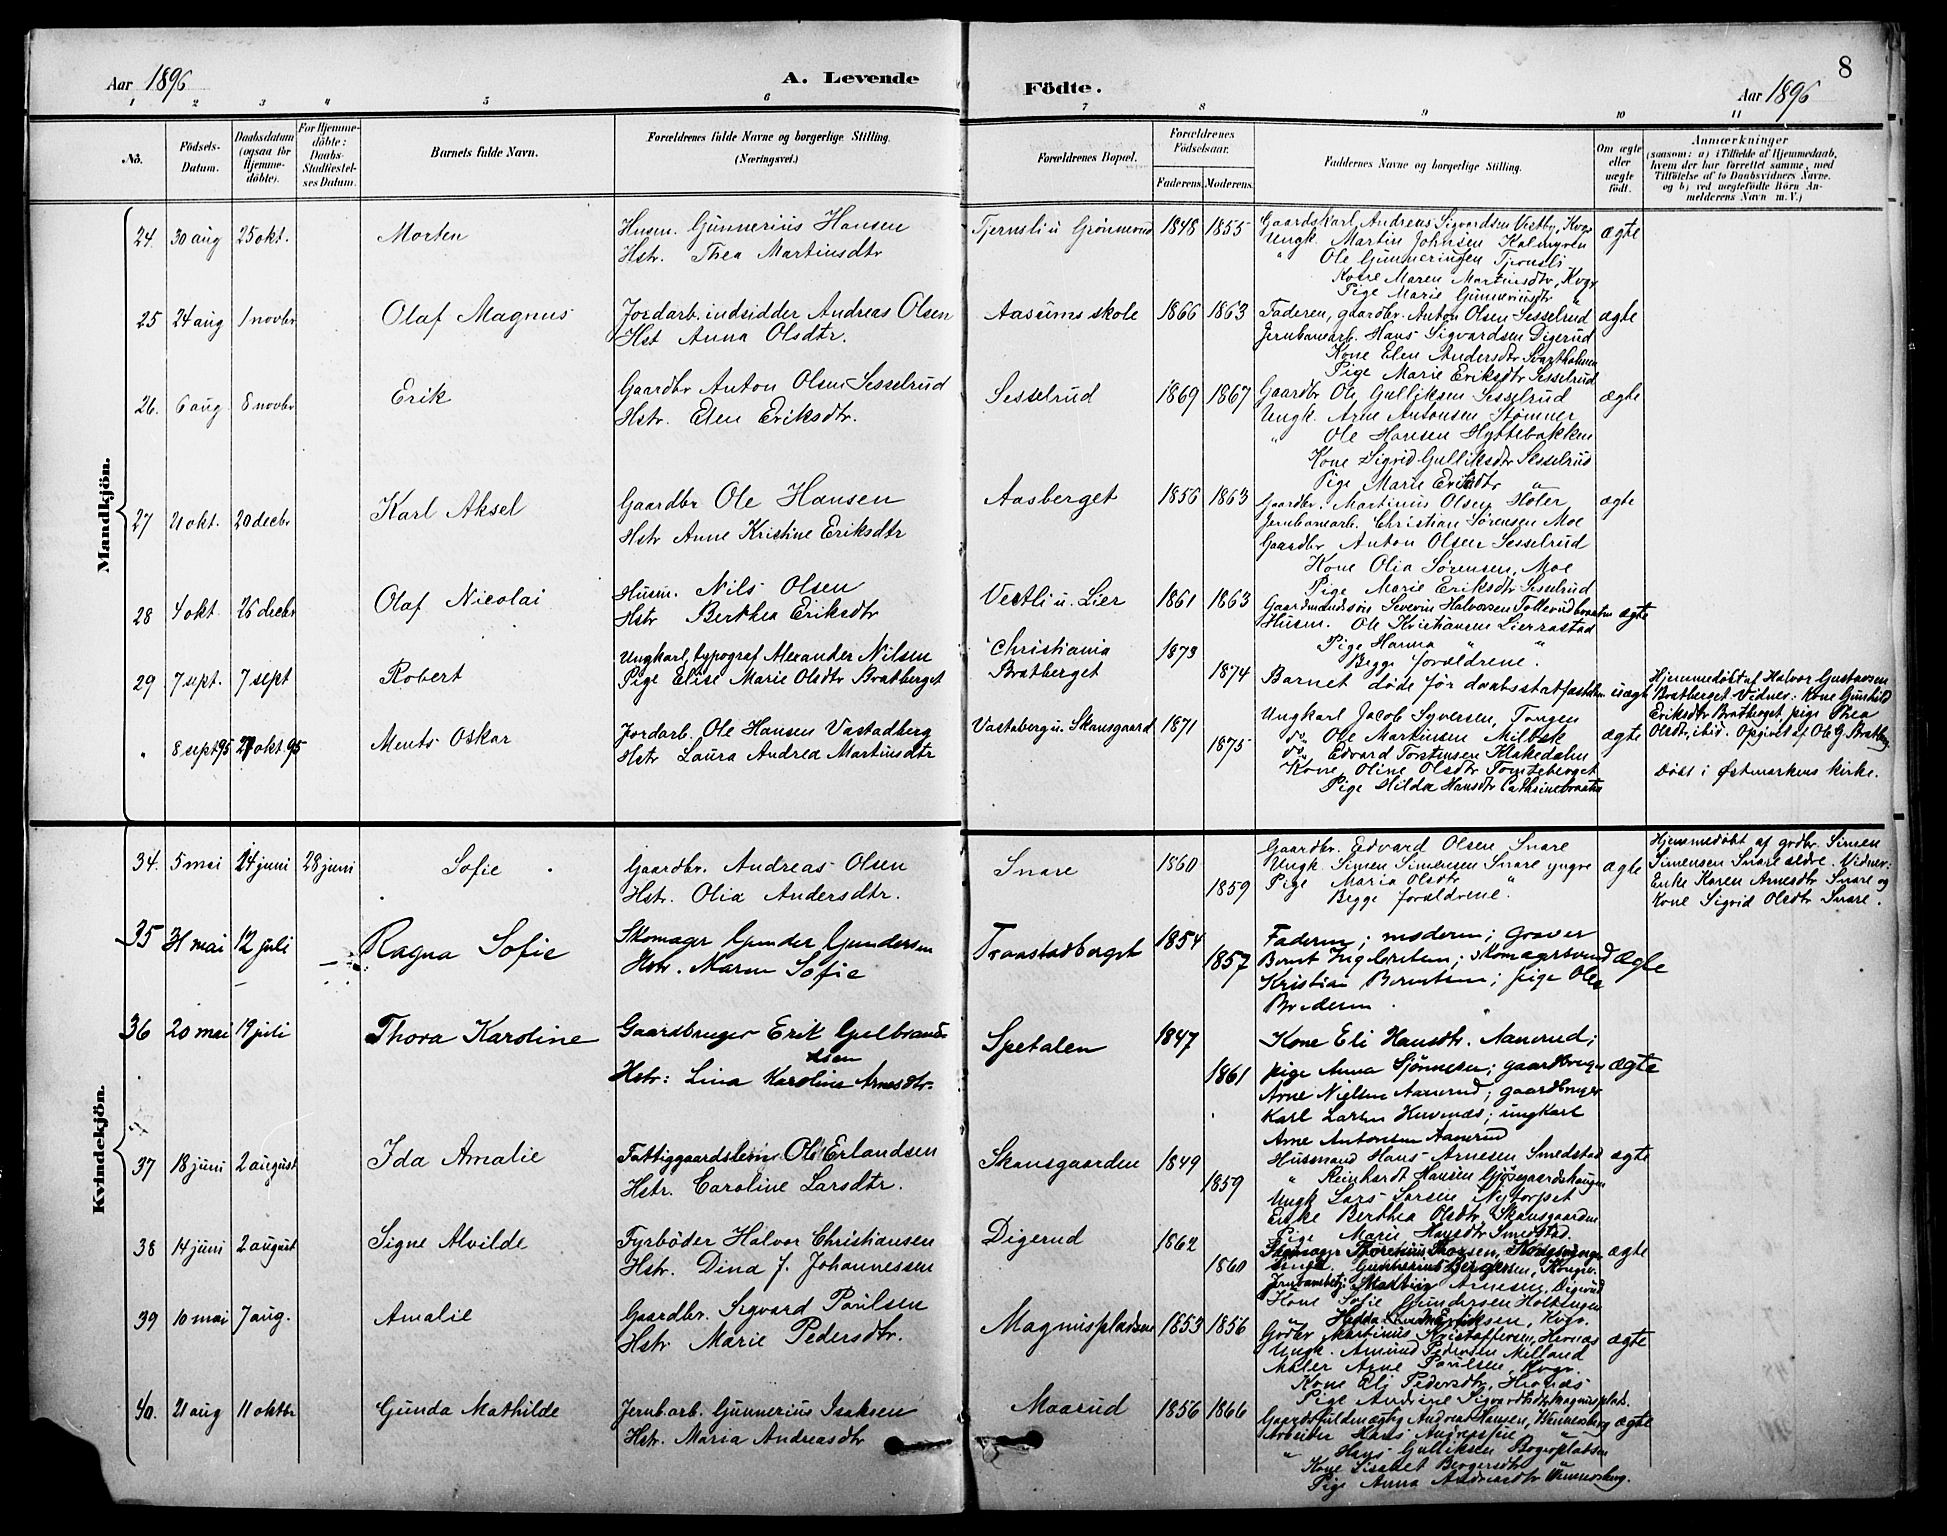 8
Aar 1896
A. Levende
Födte.
Aar 1896
1 2 3 4 5 6 7 8 9 10 11
No.
Födsels-
Datum.
Daabsdatum
(ogsaa for
Hjemme-
döbte).
For Hjemme-
döbte:
Daabs-
Stadfæstel-
ses Datum.
Barnets fulde Navn.
Forældrenes fulde Navne og borgerlige Stilling.
(Næringsvei.)
Forældrenes Bopæl.
Forældrenes
Födselsaar.
Faderens. Moderens.
Faddernes Navne og borgerlige Stilling.
Om ægte
eller
uægte
födt.
Anmærkninger
(saasom: a) i Tilfælde af Hjemmedaab,
hvem der har forrettet samme, med
Tilföielse af to Daabsvidners Navne,
og b) ved uægtefödte Börn An-
melderens Navn m. V.)
Mandkjön.
24. 30 aug 25 okt. Morten
Husm. Gunnerius Hansen
Hstr. Thea Martinsdtr
Tjernsli u Grönnerud 1848 1855
Gaardskarl Andreas Sigvardsen Vestby, Kvgr
Ungk. Martin Johnsen Kalmyren
" Ole Gunneriusen Tjernsli
Kone Maren Martinsdtr, Kvgr
Pige Marie Gunneriusdtr "
ægte
25 24 aug 1 novbr Olaf Magnus
Jordarb. indsidder Andreas Olsen
Hst Anna Olsdtr.
Aasums skole 1866 1863
Faderen, gaardbr. Anton Olsen Sesselrud
Jernbanearb. Hans Sigvardsen Digerud
Kone Elen Andersdtr Svartholmen
Pige Marie Eriksdtr Sesselrud
ægte
26. 6 aug 8 novbr Erik
Gaardbr Anton Olsen Sesselrud
Hstr. Elen Eriksdtr.
Sesselrud 1869 1867
Gaardbr Ole Gulliksen Sesselrud
Ungk. Arne Antonsen Stömner
" Ole Hansen Hyttebakken
Kone Sigrid Gulliksdtr Sesselrud
Pige Marie Eriksdtr "
ægte
27 21 okt. 20 decbr Karl Aksel
Gaardbr Ole Hansen
Hstr Anne Kristine Eriksdtr
Aasberget 1856 1863
Gaardbr. Martinus Olsen Holer
Jernbanearb. Christian Sörensen Moe
Gaardbr Anton Olsen Sesselrud
Kone Olia Sörensen, Moe
Pige Marie Eriksdtr Sesselrud
ægte
28 4 okt 26 decbr Olaf Nicolai
Husm. Nils Olsen
Hstr Berthea Eriksdtr
Vestli u. Lier 1861 1863
Gaardmandssön Severin Halvorsen Tollerudbraaten
Husm. Ole Kristiansen Lierrastad
Pige Hanna " "
Begge forældrene.
ægte
29 7 sept. 7 sept Robert
Ungkarl, typograf Alexander Nilsen
Pige Elise Marie Olsdtr Bratberget
Christiania 1873
Bratberget 1874
Barnet döde för daabsstatfæstelsen
uægte
Hjemmedöbt af Halvor Gustavsen
Bratberget. Vidner: Kone Gunhild
Eriksdtr Bratberget, pige Thea
Olsdtr, ibid. Opgivet af Ole G. Bratberg
" 8 sept 95 27 okt. 95 Ments Oskar
Jordarb. Ole Hansen Vastadberg
Hstr Laura Andrea Martinsdtr
Vastaberg u. Skansgaard 1871 1875
Ungkarl Jacob Syversen, Tangen
do. Ole Martinsen
do. Edvard Torstensen Klakedalen
Kone, Oline Olsdtr Tomteberget
Pige Hilda Hansdtr Cathrinebraaten
ægte
Döbt i Östmarkens kirke.
Kvindekjön.
34. 5 mai 24 juni 28 juni Sofie
Gaardbr. Andreas Olsen
Hstr. Olia Andersdtr.
Snare 1860 1859
Gaardbr. Edvard Olsen Snare
Ungk. Simen Simensen Snare yngre
Pige Maria Olsdtr "
Begge forældrene.
ægte
Hjemmedöbt af grdbr. Simen
Simensen Snare ældre. Vidner:
Enke Karen Arnesdtr Snare og
Kone Sigrid Olsdtr Snare.
35 31 mai 12 juli Ragna Sofie
Skomager Gunder Gundersen
Hstr. Maren Sofie
Transtadberget 1854 1857
Faderen; moderen; Graver
Bernt Ingebretsen; skomagersvend
Kristian Berntsen; pige Olea
Brederen.
ægte
36 20 mai 19 juli Thora Karoline
Gaardbruger Erik Gulbrand-
sen
Hstr: Lina Karoline Arnesdtr.
Spetalen 1847 1861
Kone Eli Hansdtr. Aanerud;
pige Anna Sjönnesen; gaardbruger
Arne Nielsen Aanerud; gaardbruger
Karl Larsen Hervenæs; ungkarl
Arne Antonsen Aanerud
ægte
37 18 juni 2 august Ida Amalie
Fattiggaardslem Ole Erlandsen
Hstr. Caroline Larsdtr.
Skansgaarden 1849 1859
Husmand Hans Arnesen Smedstad
" Reinhardt Hansen Gjösegaardshaugen
Ungk Lars Larsen Nytorpet
Enke Berthea Olsdtr, Skansgaarden
Pige Marie Hansdtr Smedstad.
ægte
38 14 juni 2 august Signe Alvilde
Fyrböder Halvor Christiansen
Hstr. Dina J. Johannessen
Digerud 1862 1860
Skomager Thorensius Thorsen, Kongsvinger
Gunnerius Bergersen, Kongsv.
Jernbanebetj. Martin Arnesen, Digerud
Kone Sofie Gundersen Holtingen
" Hedda Eriksen, Kvgr.
ægte
39 10 mai 7 aug. Amalie
Gaardbr. Sigvard Paulsen
Hstr. Marie Pedersdtr.
Magnuspladsen 1853 1856
Grdbr Martinus Kristoffersen, Hernæs
Ungk. Amund Pedersen Melland
Maler Arne Paulsen, Kvgr.
Kone Eli Pedersdtr, Hernæs
Pige Andrine Sigvardsdtr Magnusplads.
ægte
40. 21 aug 11 oktbr Gunda Mathilde
Jernb.arb. Gunnerius Isaksen
Hstr. Maria Andreasdtr
Maarud 1856 1866
Gaardsfuldmægtig Andreas Hansen, Vennersberg
Arbeider Hans Andreassen "
" Hans Gulliksen Bogerpladsen
Kone Lisabet Bergersdtr "
Pige Anna Andreasdtr Vennersberg.
ægte